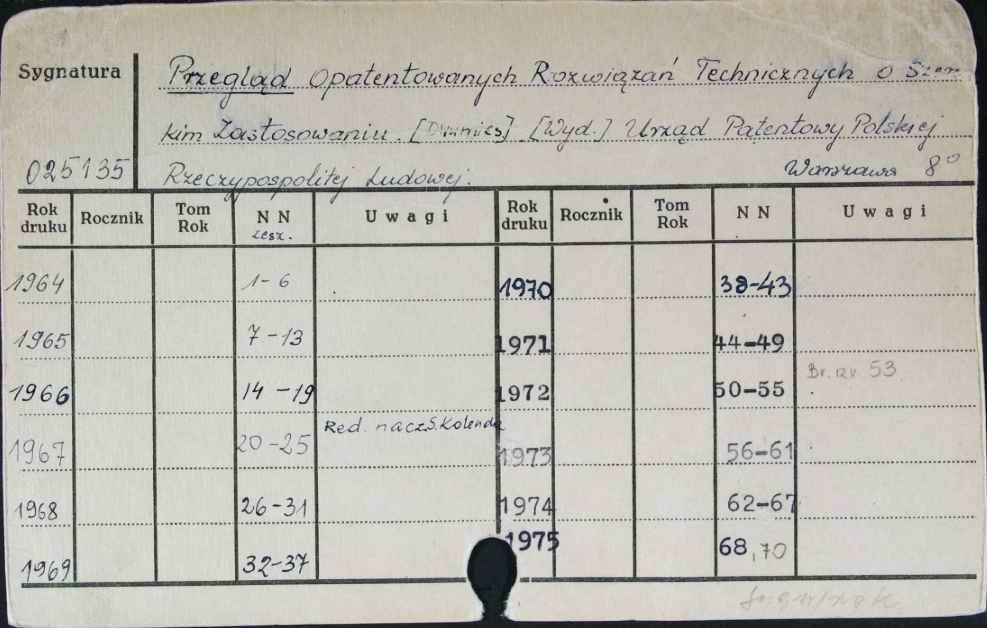 Sygnatura
Przegląd Opatentowanych Rozwiązań Technicznych o Szer
kim Zastosowaniu. [Wyd.] Urząd Patentowy Polskiej
025135 Rzeczypospolitej Ludowej. Warszawa 8°
Rok druku Rocznik Tom Rok NN zesz. Uwagi Rok druku Rocznik Tom Rok NN Uwagi
1964 1-6 1970 38-43
1965 7-13 1971 44-49
1966 14-19 1972 50-55 53
1967 20-25 Red. nacz. S. Kolenda 1973 56-61
1968 26-31 1974 62-67
1969 32-37 1975 68,70